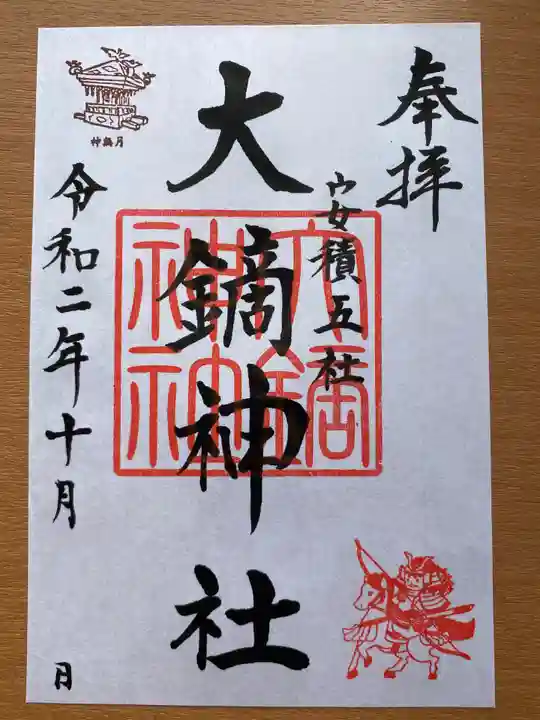 奉拝
安積五社
大鏑神社
令和二年十月
日
神無月